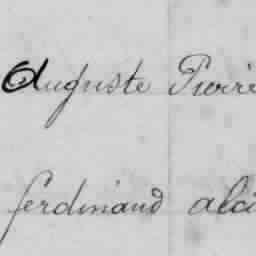 Auguste Pierre
ferdinand alci